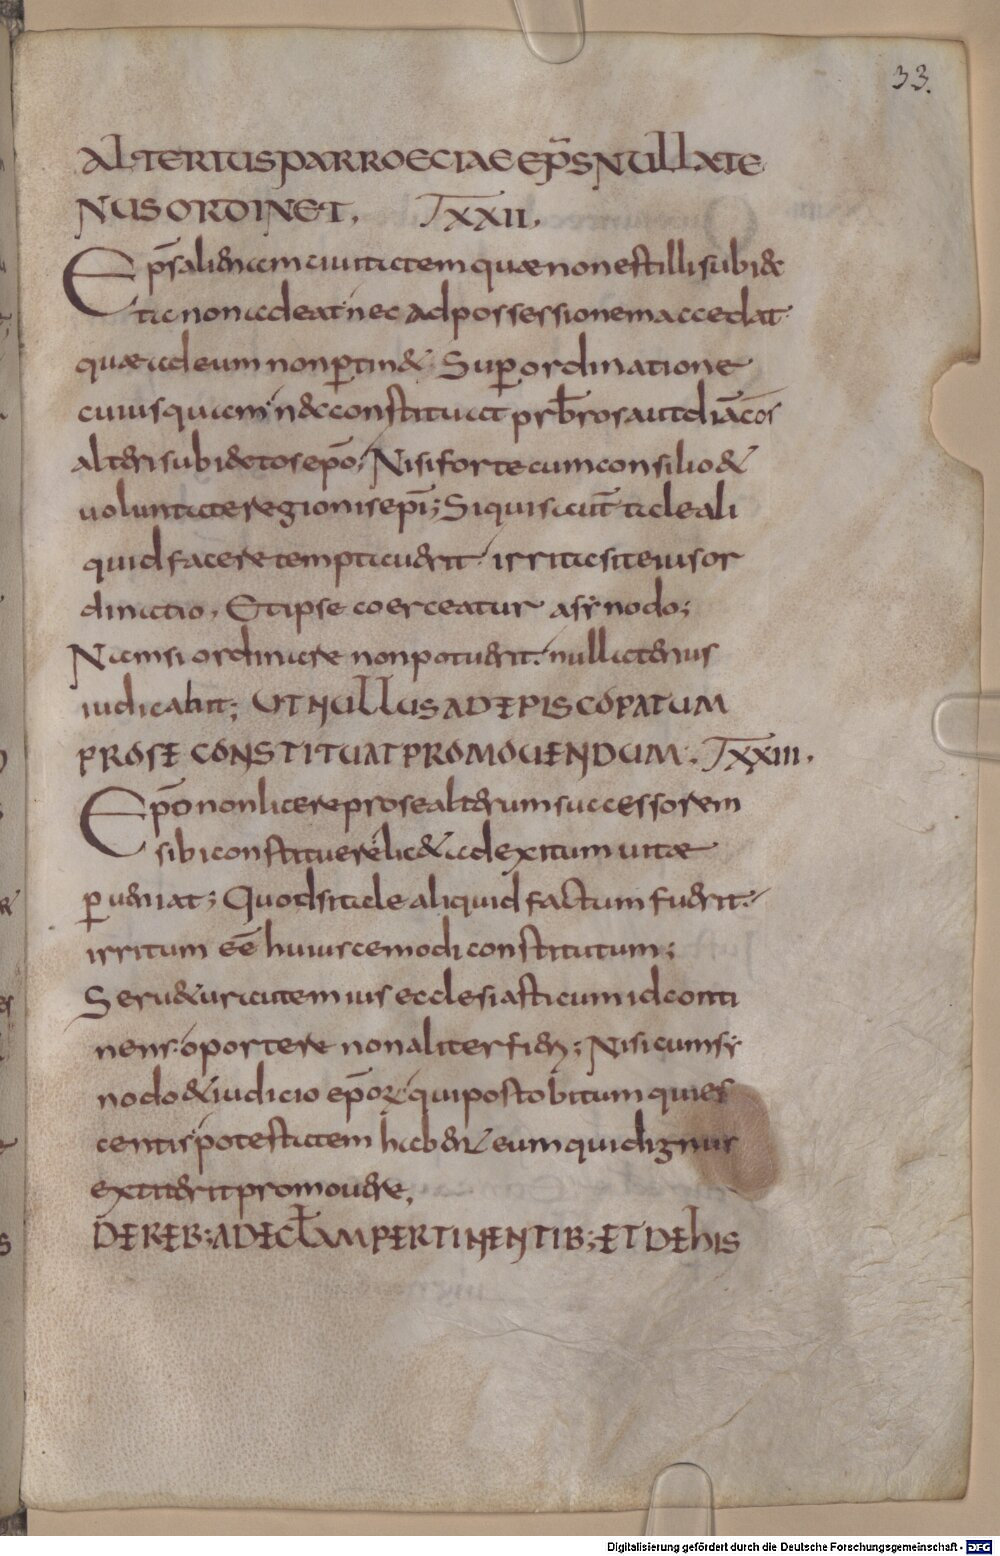 33.
ALTERIUS PARROECIAE EP̄S NULLATE
NUS ORDINET. T̄XXII.
Ep̄s alienam ciuitatem quae non est illi subiec
ta non adeat nec ad possessionem accedat
quae ad eum non ꝑtinet. Suꝑ ordinatione
cuiusquam nec constituat prb̄ros aut diac̄os
alteri subiectos ep̄o. Nisi forte cum consilio &
uoluntate regionis ep̄i; Si quis aut̄ tale ali
quid facere temptauerit irrita sit eius or
dinatio. Et ipse coerceatur a synodo;
Nam si ordinare non potuerit. nullatenus
iudicabit; UT NULLUS AD EPISCOPATUM
PRO SE CONSTITUAT PROMOUENDUM. T̄XXIII.
Ep̄o non licere pro se alterum successorem
sibi constituere lic& ad exitum uitae
ꝑueniat; Quod si tale aliquid factum fuerit.
irritum eē huiuscemodi constitutum;
Seru&ur autem ius ecclesiasticum id conti
nens oportere non aliter fieri; Nisi cum sy
nodo & iudicio ep̄oꝝ qui post obitum quies
centis potestatem habent eum qui dignus
extiterit promouere,
DE REB; AD ECL̄AM PERTINENTIB; ET DE HIS
Digitalisierung gefördert durch die Deutsche Forschungsgemeinschaft - DFG